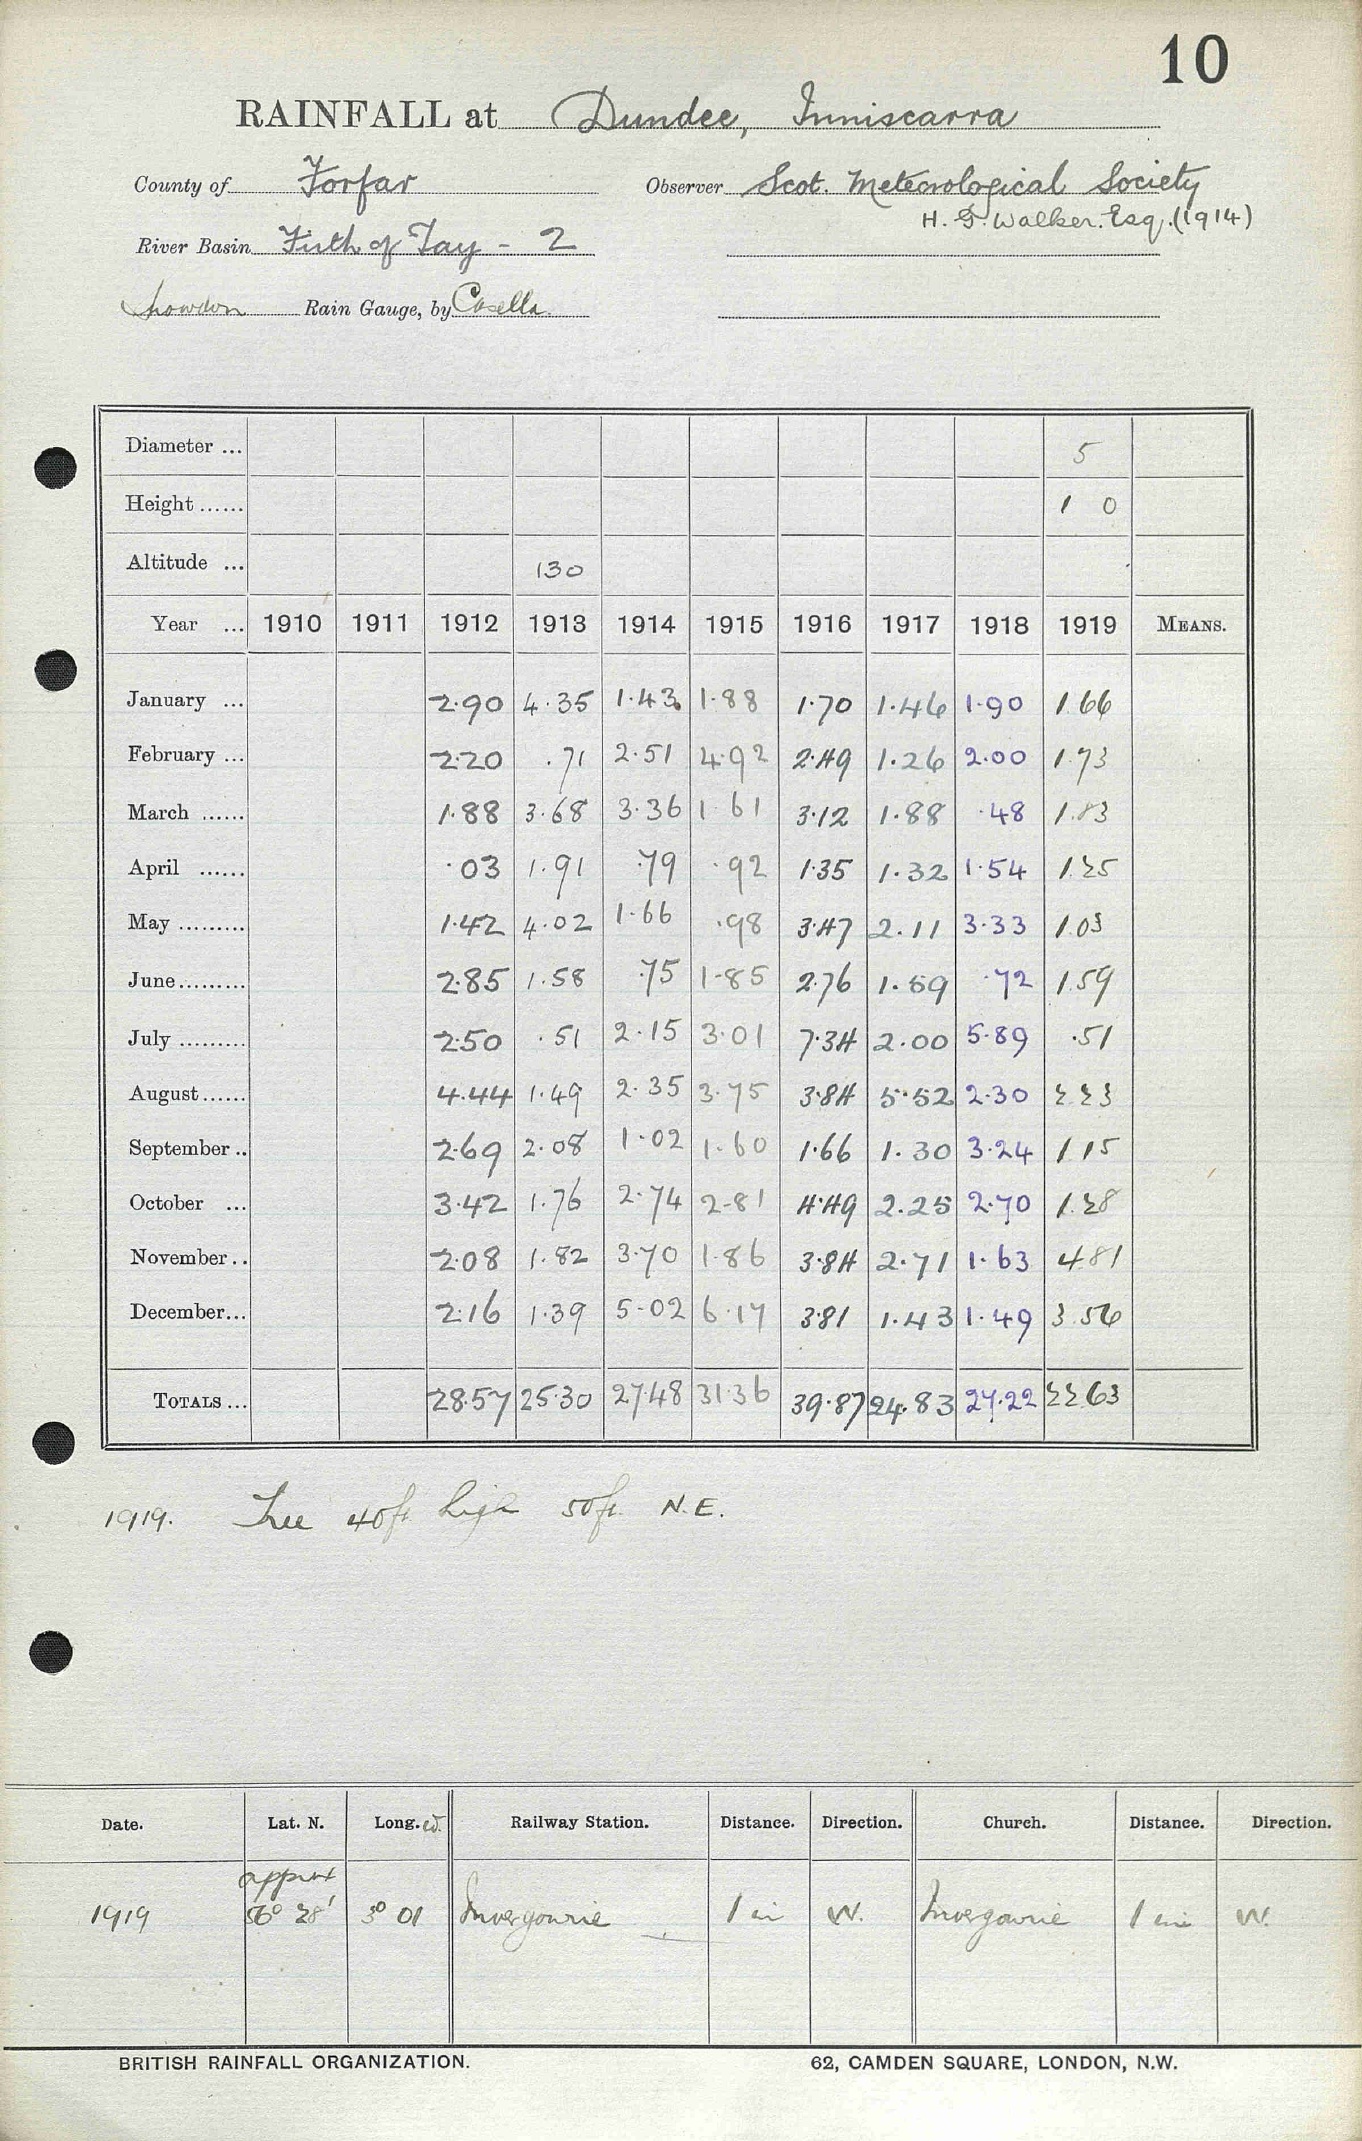 10
RAINFALL at Dundee, Inniscarra
County of Forfar Observer Scot. Meteorological Society
H. F. Walker. Esq. (1914)
River Basin Firth of Tay - 2
Snowdon Rain Gauge, by Casella.
Diameter ... 5
Height ...... 1 0
Altitude ... 130
Year ... 1910 1911 1912 1913 1914 1915 1916 1917 1918 1919 MEANS.
January ... 2.90 4.35 1.43 1.88 1.70 1.46 1.90 1.66
February ... 2.20 .71 2.51 4.92 2.49 1.26 2.00 1.73
March ...... 1.88 3.68 3.36 1.61 3.12 1.88 .48 1.83
April ...... .03 1.91 .79 .92 1.35 1.32 1.54 1.25
May ......... 1.42 4.02 1.66 .98 3.47 2.11 3.33 1.03
June ......... 2.85 1.58 .75 1.85 2.76 1.59 .72 1.59
July ......... 2.50 .51 2.15 3.01 7.34 2.00 5.89 .51
August ...... 4.44 1.49 2.35 3.75 3.84 5.52 2.30 2.23
September .. 2.69 2.08 1.02 1.60 1.66 1.30 3.24 1.15
October ... 3.42 1.76 2.74 2.81 4.49 2.25 2.70 1.28
November .. 2.08 1.82 3.70 1.86 3.84 2.71 1.63 4.81
December ... 2.16 1.39 5.02 6.17 3.81 1.43 1.49 3.56
TOTALS ... 28.57 25.30 27.48 31.36 39.87 24.83 27.22 22.63
1919. Tree 40ft high 50ft. N.E.
Date. Lat. N. Long. W. Railway Station. Distance. Direction. Church. Distance. Direction.
approx
1919 56° 28' 3° 01 Invergowrie 1 mi W. Invergowrie 1 mi W.
BRITISH RAINFALL ORGANIZATION. 62, CAMDEN SQUARE, LONDON, N.W.